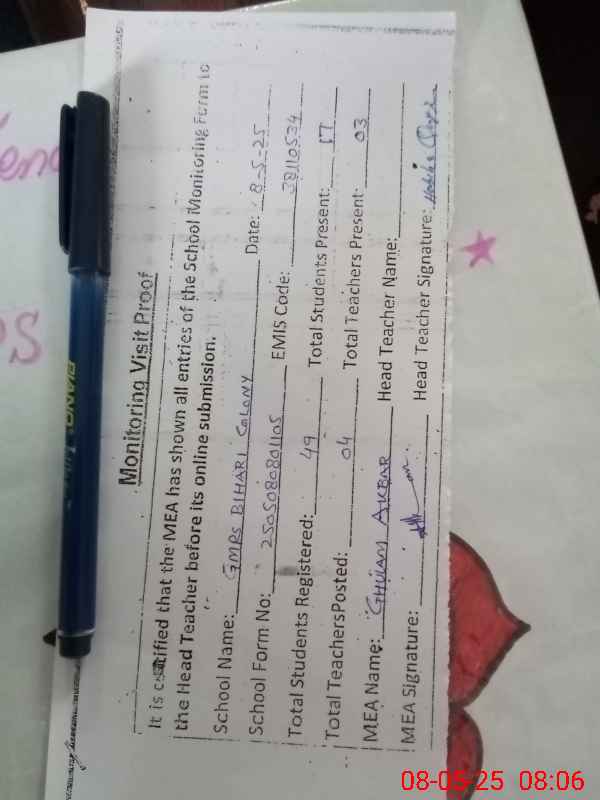 Monitoring Visit Proof
It is certified that the MEA has shown all entries of the School Monitoring Form to
the Head Teacher before its online submission.
School Name: GMPS BIHARI COLONY Date: 8-5-25
School Form No: 2505080801105 EMIS Code: 38110534
Total Students Registered: 49 Total Students Present: 17
Total TeachersPosted: 04 Total Teachers Present: 03
MEA Name: GHULAM AKBAR Head Teacher Name:
MEA Signature: Head Teacher Signature:
PIANO
08-05-25 08:06